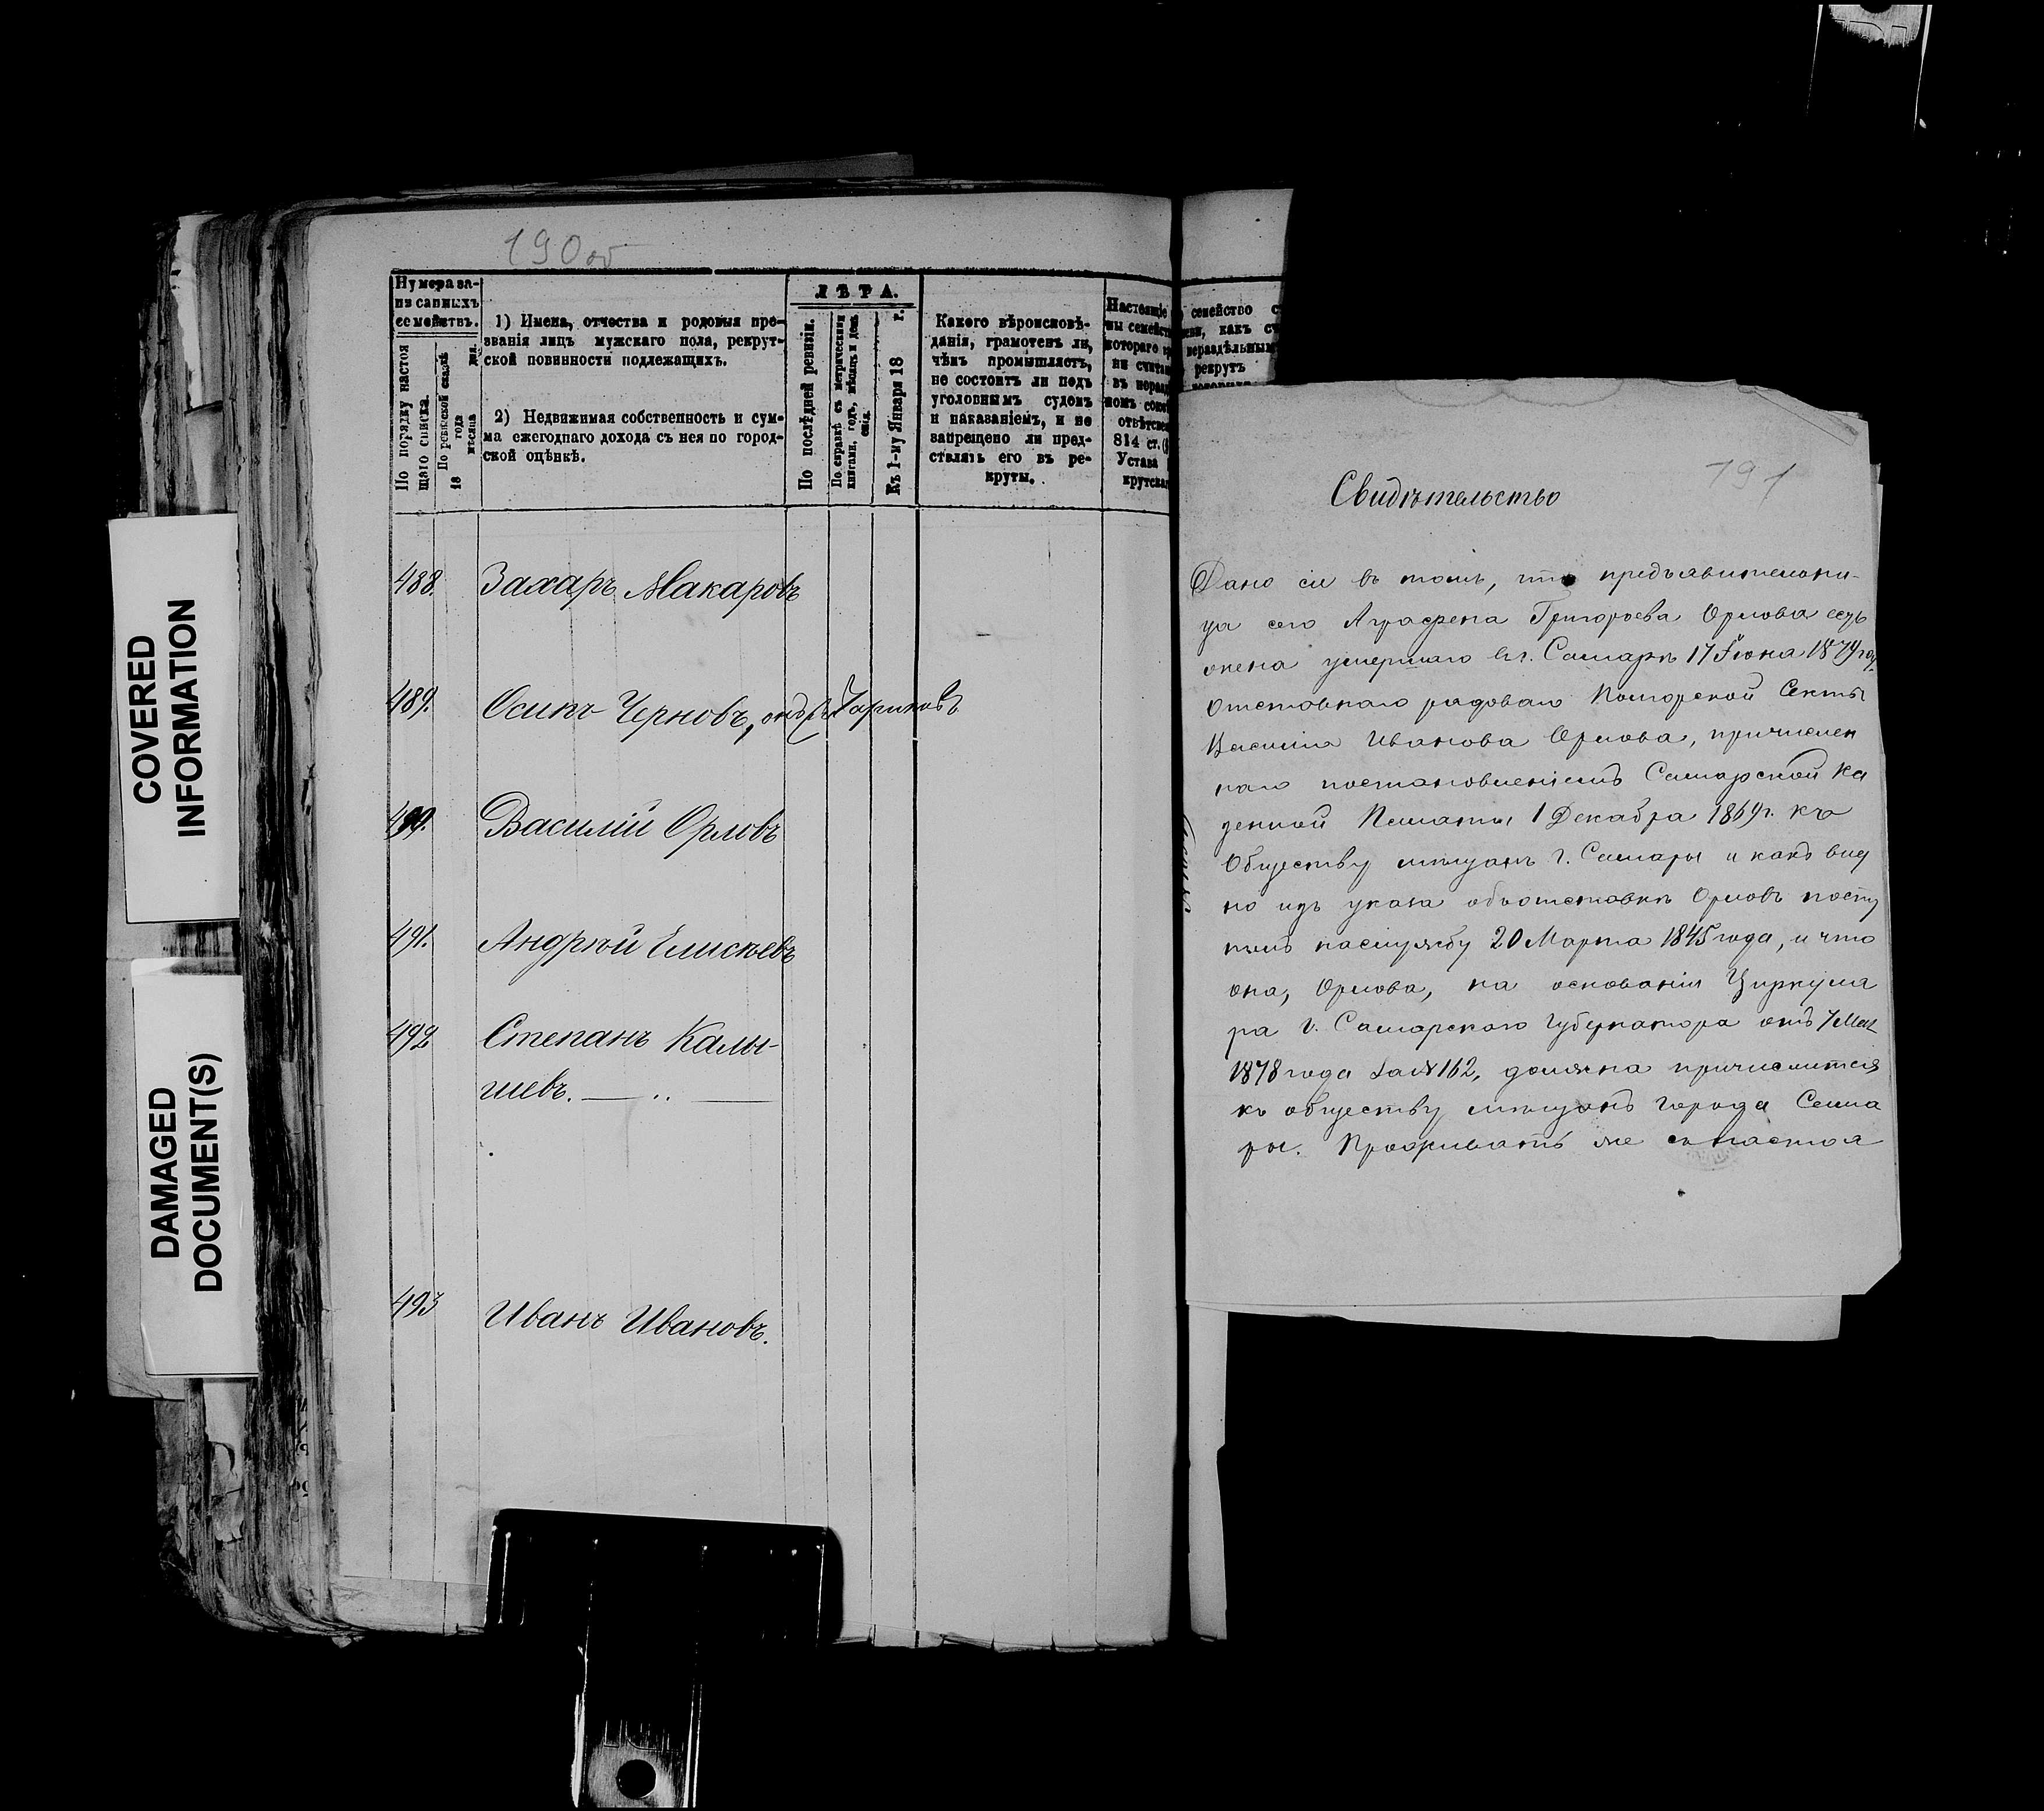 190 об
Нумера за-
писанныхъ
семействъ.
По порядку настоя
щаго списка.
По ревизской сказкѣ
18 года
мѣсяца дня.
1) Имена, отчества и родовыя про-
званія лицъ мужскаго пола, рекрут-
ской повинности подлежащихъ.
2) Недвижимая собственность и сум-
ма ежегоднаго дохода съ нея по город-
ской оцѣнкѣ.
ЛѢТА.
По послѣдней ревизіи.
По справкѣ съ метрическими
книгами, годъ, мѣсяцъ и день
Къ 1-му Января 18 г.
Какого вѣроисповѣ-
данія, грамотенъ ли,
чѣмъ промышляетъ,
не состоитъ ли подъ
уголовнымъ судомъ
и наказаніемъ, и не
запрещено ли пред-
ставлять его въ ре-
круты.
Настоящіе
ны семейст
котораго
ни счита
въ нераз
номъ
отвѣтств
814 ст.
Устава
крутска
семейство с
какъ с
нераздѣльным
рекрутъ
488. Захаръ Макаровъ
489. Осипъ Черновъ, онъ же Чариковъ
490. Василій Орловъ
491. Андрей Елисѣевъ
492 Степанъ Калы-
шевъ.
493 Иванъ Ивановъ.
COVERED
INFORMATION
DAMAGED
DOCUMENT(S)
191
Свидѣтельство
Дано сіе въ томъ, что предъявительни-
ца сего Аграфена Григорьева Орлова есть
жена умершаго въ г. Самарѣ 17 Іюня 1879 год.
отставнаго рядоваго Поморской Секты
Василія Иванова Орлова, причислен
наго постановленіемъ Самарской Ка
зенной Палаты 1 Декабря 1869 г. къ
Обществу мѣщанъ г. Самары и какъ вид
но изъ указа объ отставкѣ Орловъ посту
пилъ на службу 20 Марта 1845 года, и что
она, Орлова, на основаніи Циркуля
ра г. Самарскаго Губернатора отъ 7 Мая
1878 года за № 162, должна причислится
къ обществу мѣщанъ города Сама
ры. Проживать же съ настоя